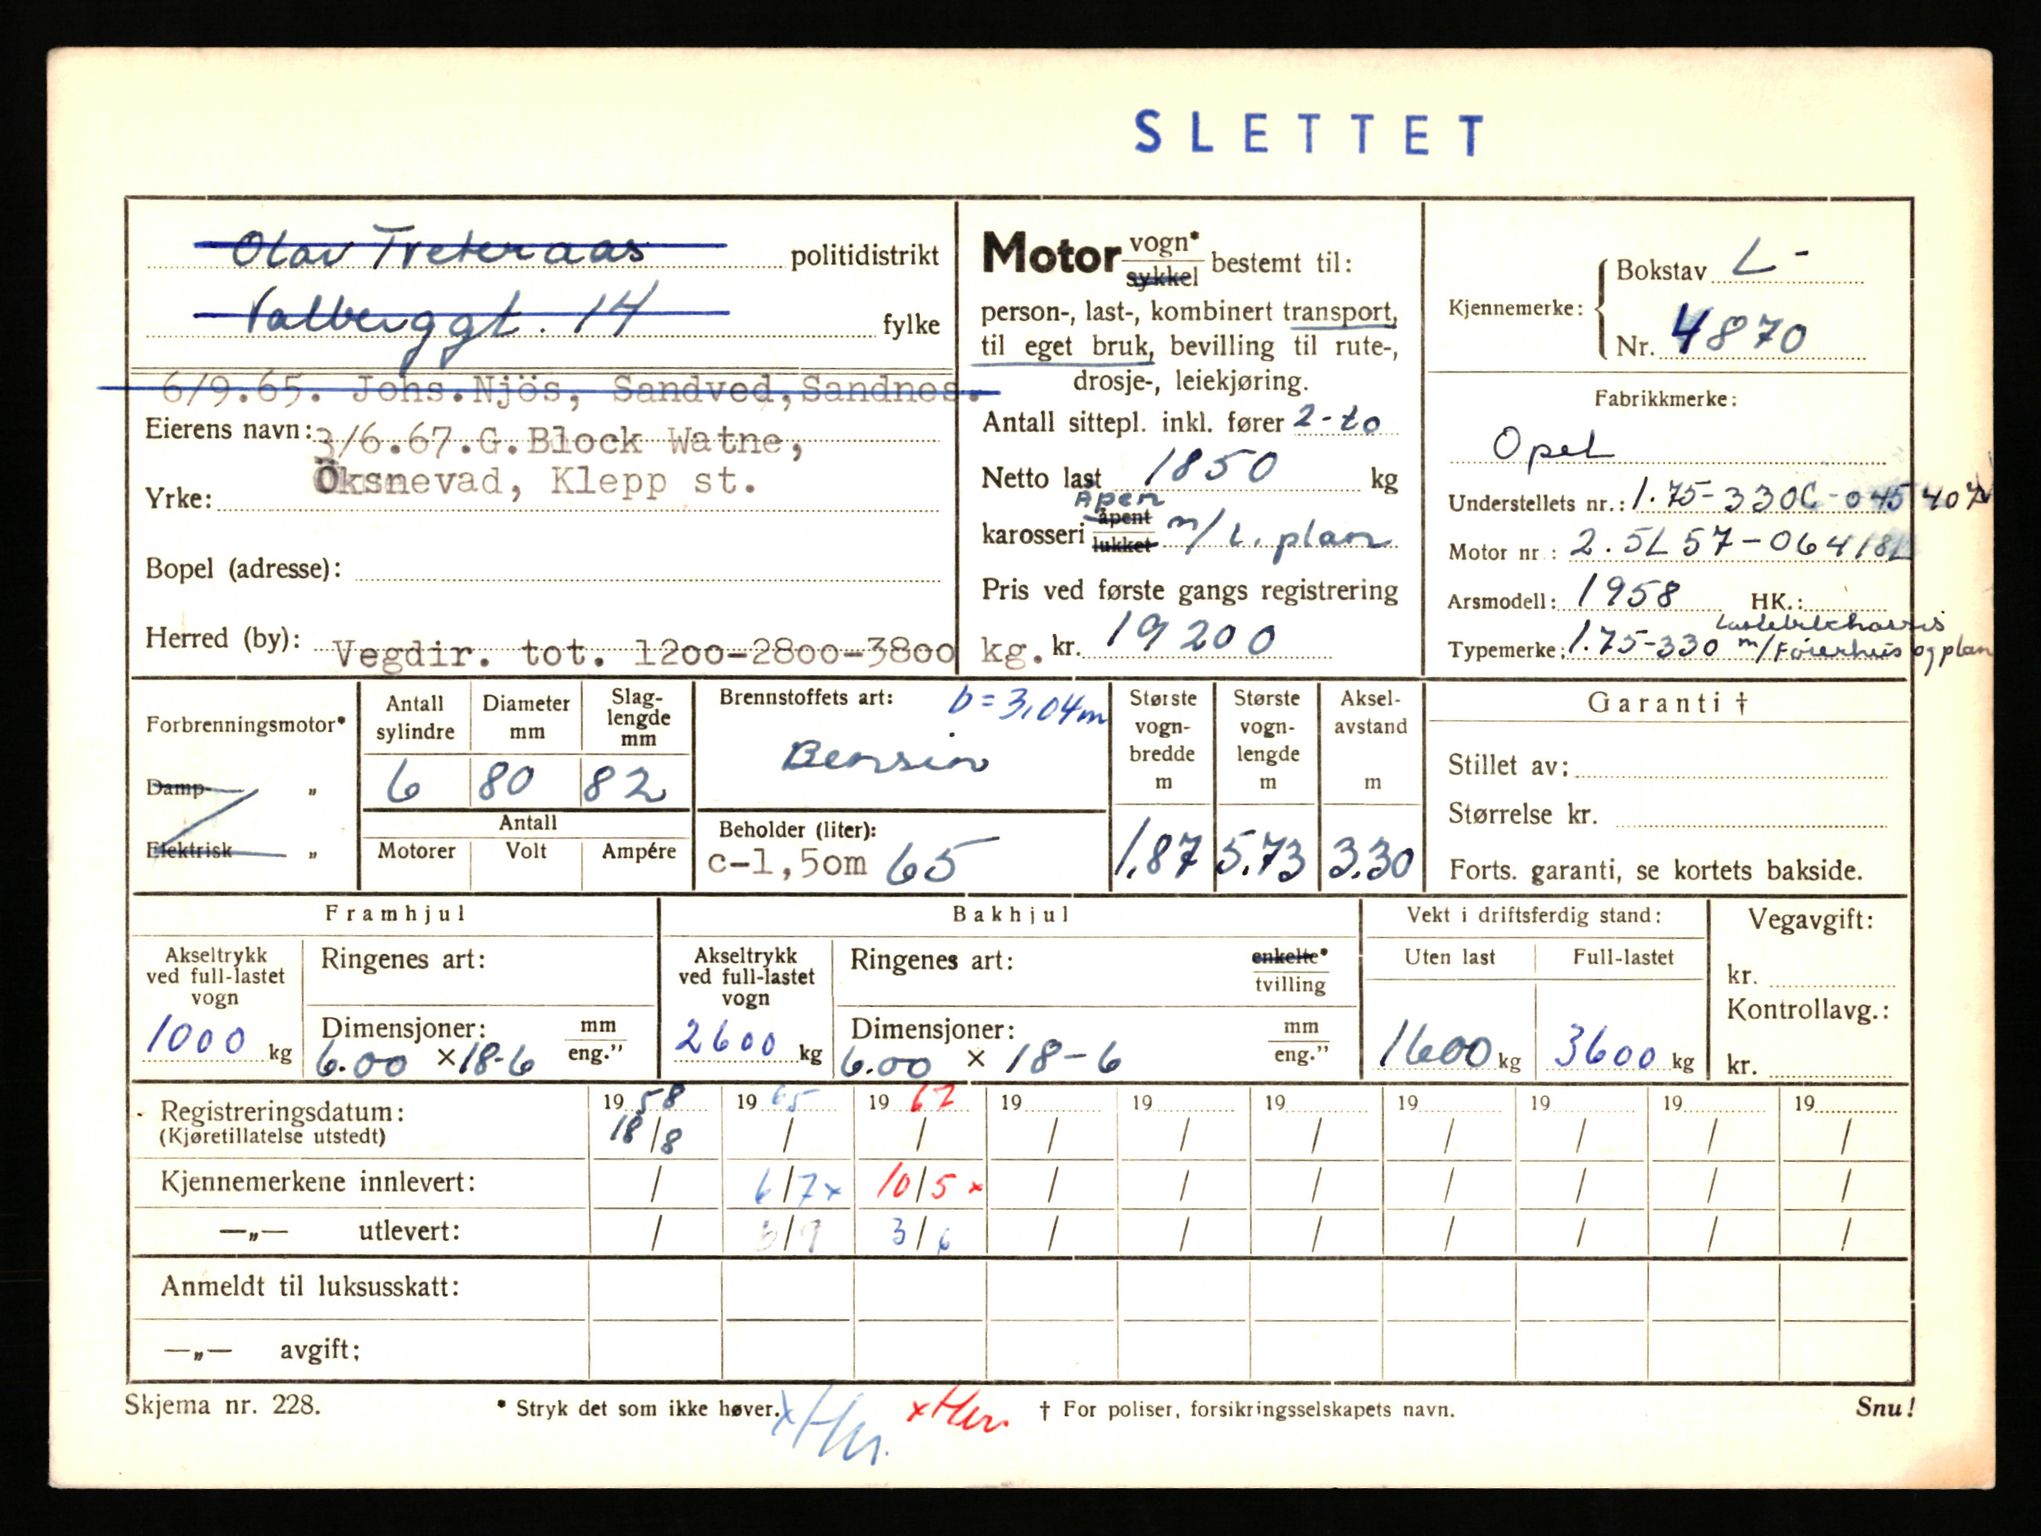 SLETTET
Olav Treteraas politidistrikt
Valberggt. 14 fylke
6/9.65. Johs.Njös, Sandved,Sandnes.
Eierens navn: 3/6.67.G.Block Watne,
Öksnevad, Klepp st.
Yrke:
Bopel (adresse):
Herred (by): Vegdir. tot. 1200-2800-3800 kg.
Motor vogn* sykkel bestemt til:
person-, last-, kombinert transport,
til eget bruk, bevilling til rute-,
drosje-, leiekjøring.
Antall sittepl. inkl. fører 2-to
Netto last 1850 kg
Åpen
karosseri åpent lukket m/L. plan
Pris ved første gangs registrering
kr. 19200
Kjennemerke: Bokstav L-
Nr. 4870
Fabrikkmerke:
Opel
Understellets nr.: 1.75-330C-045407
Motor nr: 2.5L57-064181
Arsmodell: 1958 HK.:
Lastebilchassis
Typemerke: 1.75-330 m/Förerhus og plan
Forbrenningsmotor*
Damp- „
Elektrisk „
Antall sylindre 6
Diameter mm 80
Slaglengde mm 82
Antall
Motorer Volt Ampére
Brennstoffets art: b=3,04m
Bensin
Beholder (liter):
c-1,50m 65
Største vognbredde m 1.87
Største vognlengde m 5.73
Akselavstand m 3.30
Garanti †
Stillet av:
Størrelse kr.
Forts. garanti, se kortets bakside.
Framhjul
Akseltrykk ved full-lastet vogn 1000 kg
Ringenes art:
Dimensjoner: mm eng."
6.00 × 18-6
Bakhjul
Akseltrykk ved full-lastet vogn 2600 kg
Ringenes art: enkelte* tvilling
Dimensjoner: mm eng."
6.00 × 18-6
Vekt i driftsferdig stand:
Uten last 1600 kg
Full-lastet 3600 kg
Vegavgift:
kr.
Kontrollavg.:
kr.
Registreringsdatum: 1958 1965 1967 19 19 19 19 19 19 19
(Kjøretillatelse utstedt) 18/8 / / / / / / / / /
Kjennemerkene innlevert: / 6/7x 10/5x / / / / / / /
—„— utlevert: / 3/9 3/6 / / / / / / /
Anmeldt til luksusskatt:
—„— avgift:
Skjema nr. 228. * Stryk det som ikke høver. † For poliser, forsikringsselskapets navn. Snu!